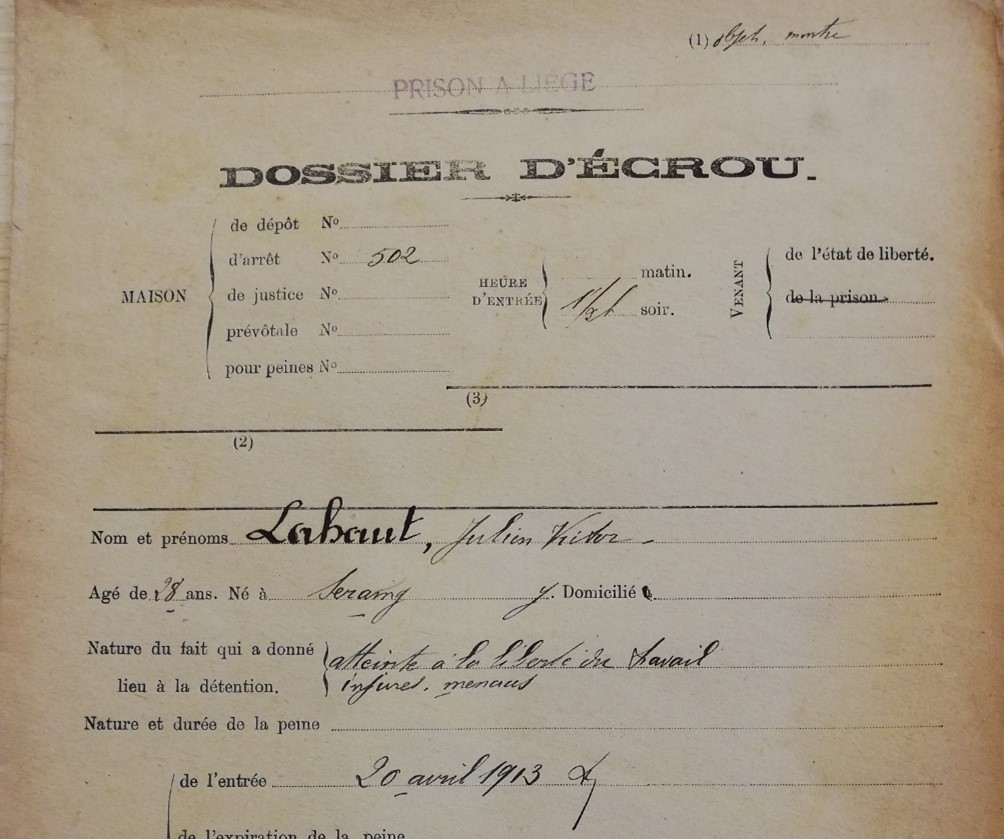 (1) objets, montre
PRISON A LIEGE
DOSSIER D'ÉCROU.
MAISON
de dépôt No
d'arrêt No 502
de justice No
prévôtale No
pour peines No
HEURE
D'ENTRÉE
matin.
soir.
VENANT
de l'état de liberté.
de la prison
(3)
(2)
Nom et prénoms Lahaut, Julien Victor
Agé de 28 ans. Né à Seraing y. Domicilié
Nature du fait qui a donné
lieu à la détention.
atteinte à la liberté du travail
injures, menaces
Nature et durée de la peine
de l'entrée 20 avril 1913
de l'expiration de la peine